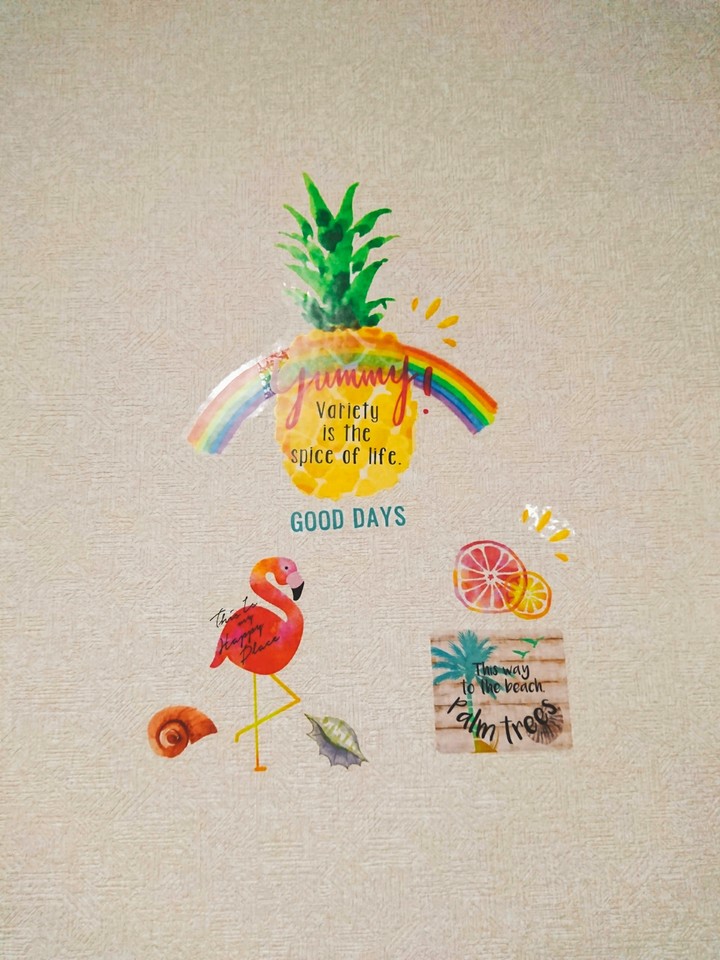 yummy!
Variety
is the
spice of life.
GOOD DAYS
this is
my
Happy
Place
This way
to the beach
Palm trees